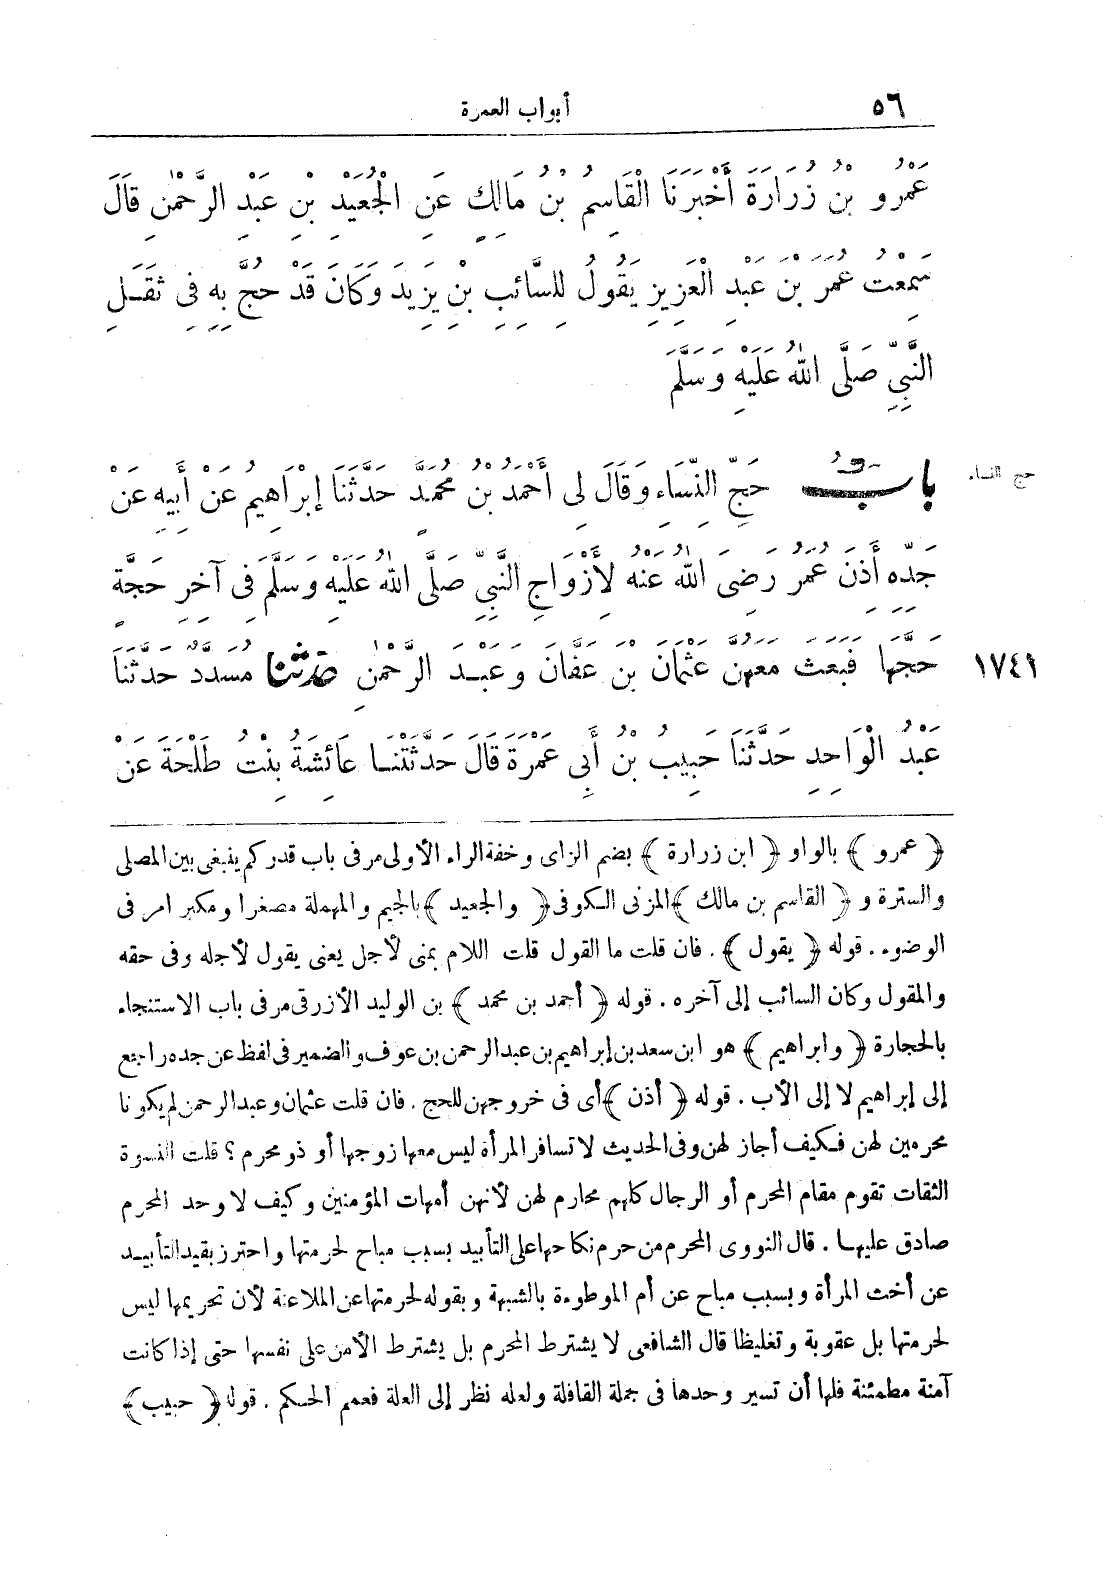 ٥٦ أبواب العمرة
عَمْرُو بْنُ زُرَارَةَ أَخْبَرَنَا الْقَاسِمُ بْنُ مَالِكٍ عَنِ الْجُعَيْدِ بْنِ عَبْدِ الرَّحْمٰنِ قَالَ
سَمِعْتُ عُمَرَ بْنَ عَبْدِ الْعَزِيزِ يَقُولُ لِلسَّائِبِ بْنِ يَزِيدَ وَكَانَ قَدْ حُجَّ بِهِ فِى ثَقَلِ
النَّبِيِّ صَلَّى اللّٰهُ عَلَيْهِ وَسَلَّمَ
حج النساء
بَابُ حَجِّ النِّسَاءِ وَقَالَ لِى أَحْمَدُ بْنُ مُحَمَّدٍ حَدَّثَنَا إِبْرَاهِيمُ عَنْ أَبِيهِ عَنْ
جَدِّهِ أَذِنَ عُمَرُ رَضِىَ اللّٰهُ عَنْهُ لِأَزْوَاجِ النَّبِيِّ صَلَّى اللّٰهُ عَلَيْهِ وَسَلَّمَ فِى آخِرِ حَجَّةٍ
١٧٤١ حَجَّهَا فَبَعَثَ مَعَهُنَّ عُثْمَانَ بْنَ عَفَّانَ وَعَبْدَ الرَّحْمٰنِ حَدَّثَنَا مُسَدَّدٌ حَدَّثَنَا
عَبْدُ الْوَاحِدِ حَدَّثَنَا حَبِيبُ بْنُ أَبِى عَمْرَةَ قَالَ حَدَّثَتْنَا عَائِشَةُ بِنْتُ طَلْحَةَ عَنْ
﴿ عمرو ﴾ بالواو ﴿ ابن زرارة ﴾ بضم الزاى وخفة الراء الأولى مر فى باب قدر كم ينبغى بين المصلى
والسترة و ﴿ القاسم بن مالك ﴾ المزنى الكوفى ﴿ والجعيد ﴾ بالجيم والمهملة مصغرا ومكبرا مر فى
الوضوء . قوله ﴿ يقول ﴾ . فان قلت ما القول قلت اللام بمنى لأجل يعنى يقول لأجله وفى حقه
والمقول وكان السائب إلى آخره . قوله ﴿ أحمد بن محمد ﴾ بن الوليد الأزرقى مر فى باب الاستنجاء
بالحجارة ﴿ وابراهيم ﴾ هو ابن سعد بن إبراهيم بن عبد الرحمن بن عوف والضمير فى لفظ عن جده راجع
إلى إبراهيم لا إلى الأب . قوله ﴿ أذن ﴾ أى فى خروجهن للحج . فان قلت عثمان وعبد الرحمن لم يكونا
محرمين لهن فكيف أجاز لهن وفى الحديث لا تسافر المرأة ليس معها زوجها أو ذو محرم ؟ قلت النسوة
الثقات تقوم مقام المحرم أو الرجال كلهم محارم لهن لأنهن أمهات المؤمنين وكيف لا وحد المحرم
صادق عليها . قال النووى المحرم من حرم نكاحها على التأبيد بسبب مباح لحرمتها واحترز بقيد التأبيد
عن أخت المرأة وبسبب مباح عن أم الموطوءة بالشبهة وبقوله لحرمتها عن الملاعنة لأن تحريمها ليس
لحرمتها بل عقوبة وتغليظا قال الشافعى لا يشترط المحرم بل يشترط الأمن على نفسها حتى إذا كانت
آمنة مطمئنة فلها أن تسير وحدها فى جملة القافلة ولعله نظر إلى العلة فعمم الحكم . قوله ﴿ حبيب ﴾